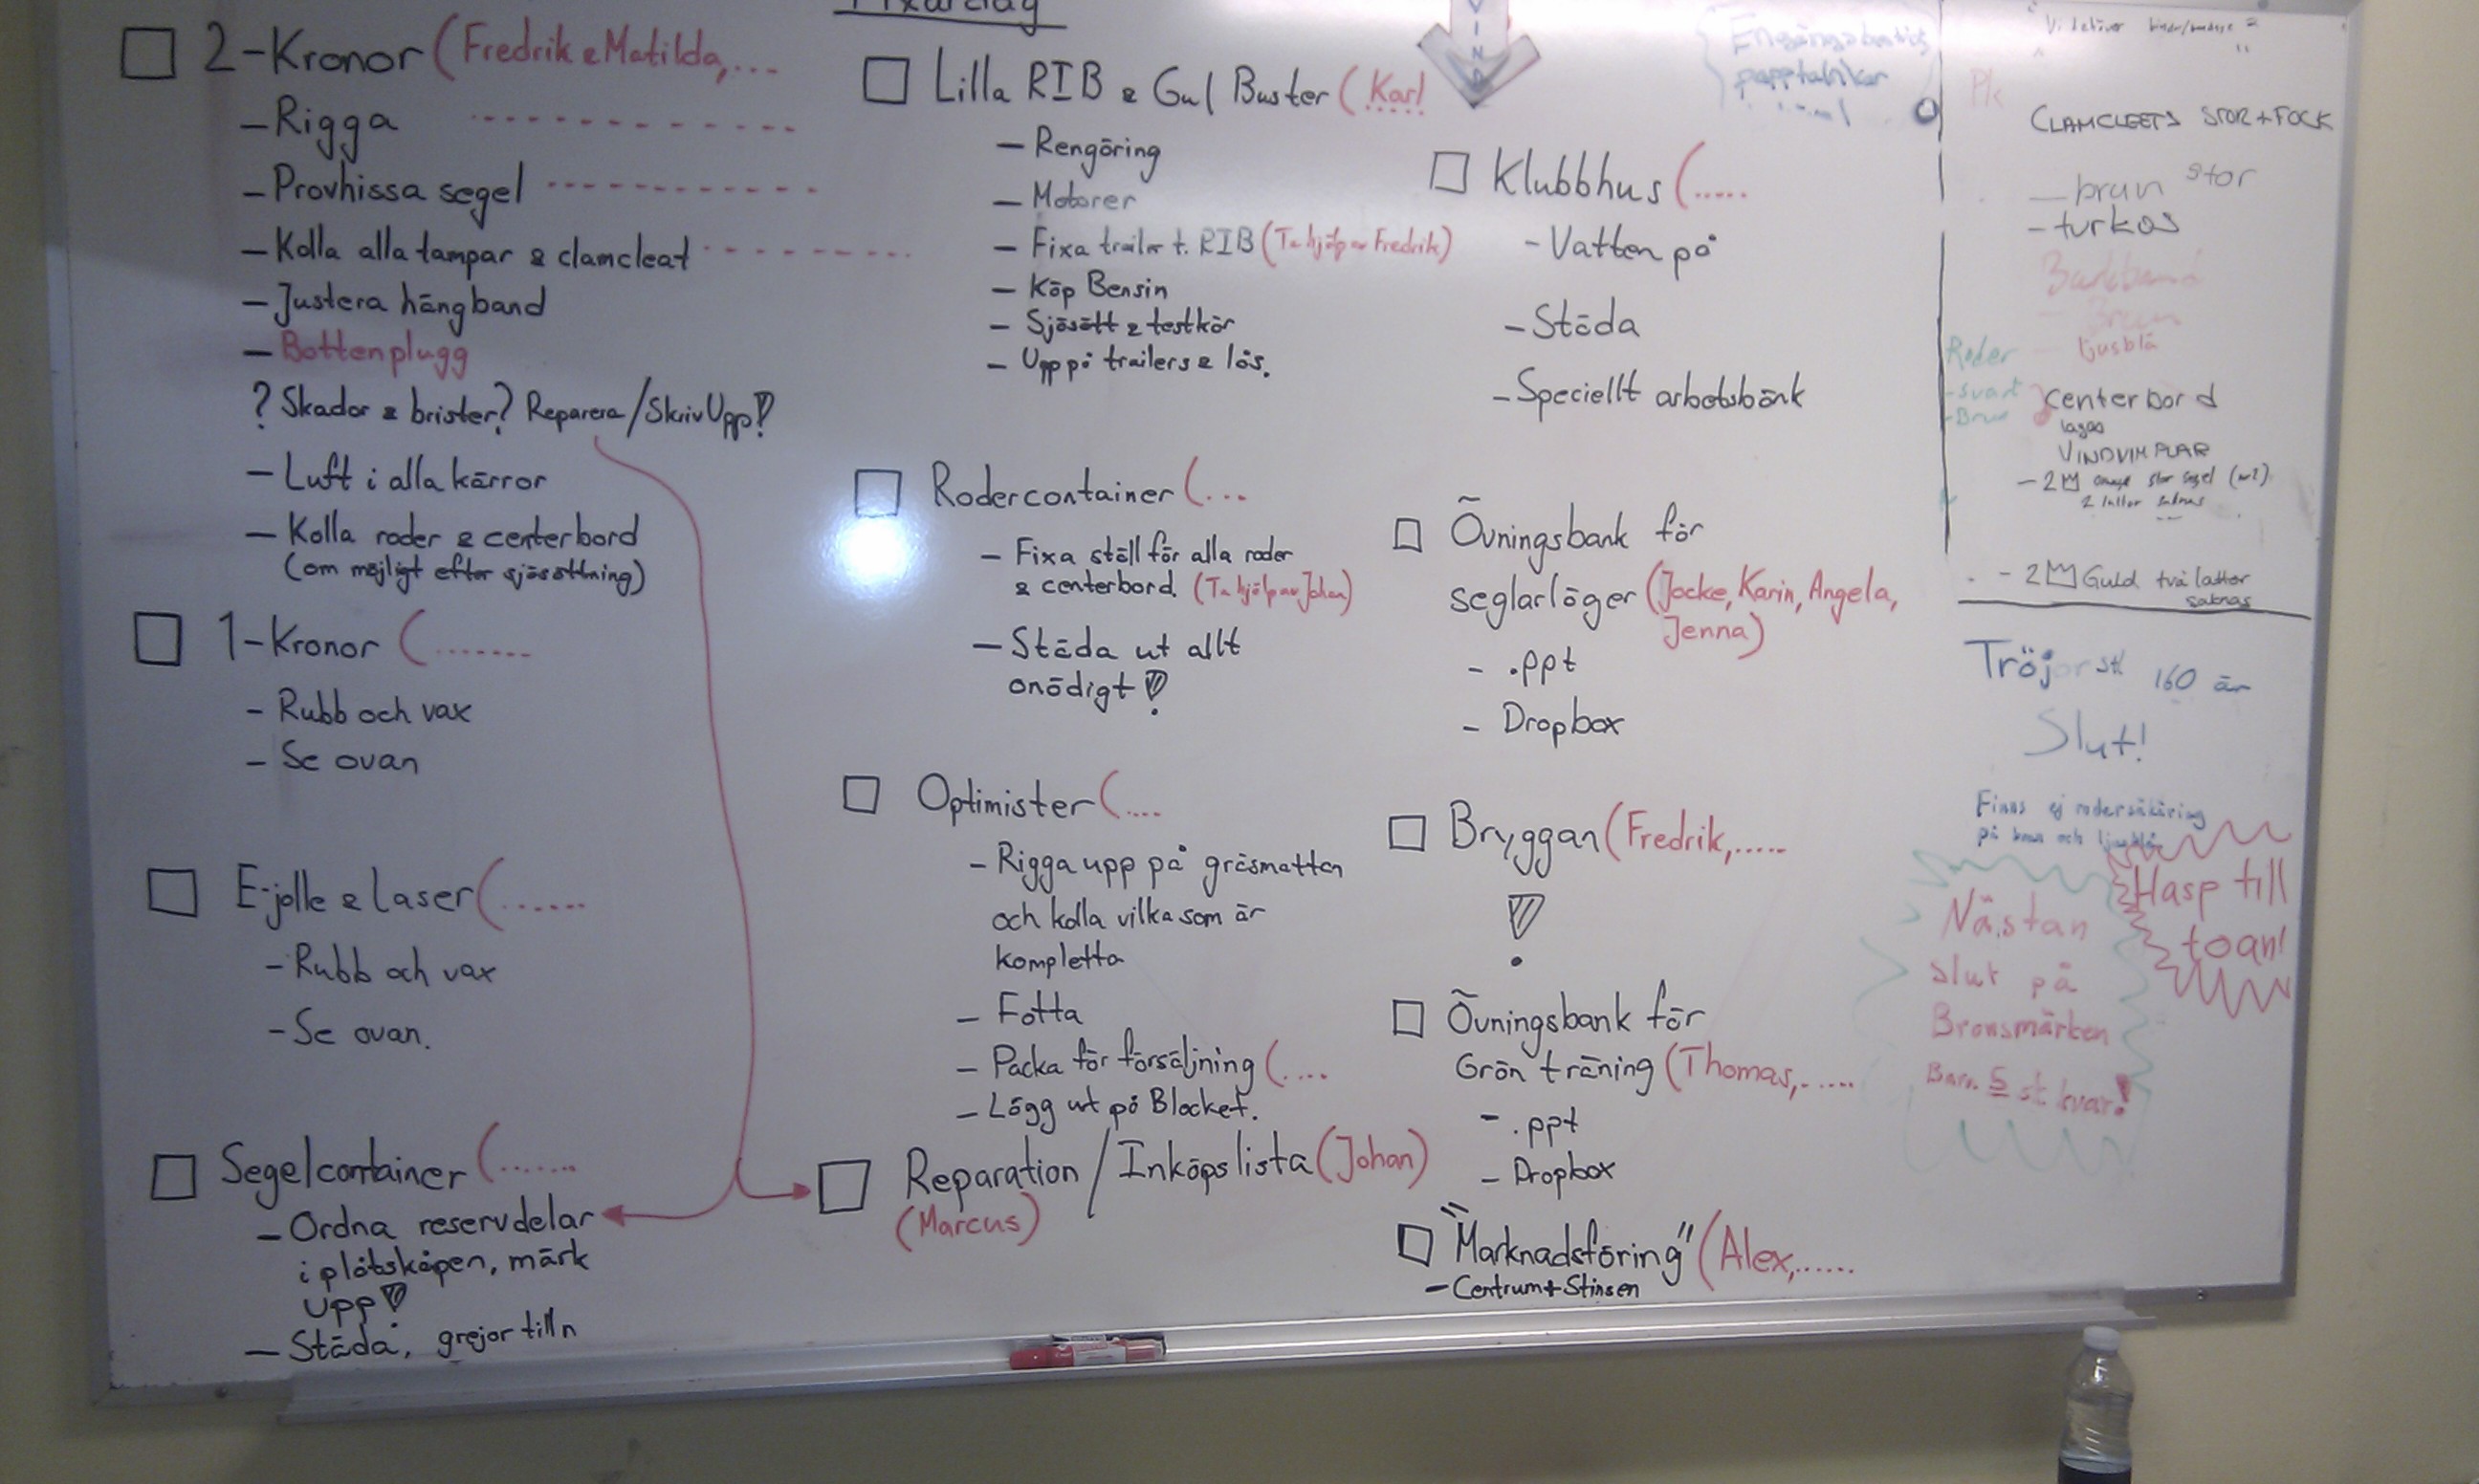 2-Kronor (Fredrik & Matilda, ...
- Rigga
- Provhissa segel
- Kolla alla tampar & clamcleat
- Justera hängband
- Bottenplugg
? Skador & brister? Reparera/Skriv Upp!
- Luft i alla kärror
- Kolla roder & centerbord
(om möjligt efter sjösättning)
1-Kronor (.......
- Rubb och vax
- Se ovan
E-jolle & laser (......
- Rubb och vax
- Se ovan.
Segelcontainer (.......
- Ordna reservdelar
i plåtskåpen, märk
upp!
- Städa, grejor till n
Fixardag
Lilla RIB & Gul Buster (Karl
- Rengöring
- Motorer
- Fixa trailer t. RIB (Ta hjälp av Fredrik)
- Köp Bensin
- Sjösätt & testkör
- Upp på trailers & lås.
Rodercontainer (...
- Fixa ställ för alla roder
& centerbord. (Ta hjälp av Johan)
- Städa ut allt
onödigt!
Optimister (....
- Rigga upp på gräsmattan
och kolla vilka som är
kompletta
- Fotta
- Packa för försäljning (....
- Lägg ut på Blocket.
Reparation/Inköpslista (Johan)
(Marcus)
VIND
Klubbhus (.....
- Vatten på
- Städa
- Speciellt arbetsbänk
Övningsbank för
seglarläger (Jocke, Karin, Angela,
Jenna)
- .ppt
- Dropbox
Bryggan (Fredrik, .....
!
Övningsbank för
Grön träning (Thomas, ......
- .ppt
- Dropbox
"Marknadsföring" (Alex, ......
- Centrum + Stinsen
Engångsbestick
papptallrikar
Vi behöver
CLAMCLEETS STOR + FOCK
- brun stor
- turkos
- Brun
- ljusblå
Roder
- svart
- Brun
centerbord
lagas
VINDVIMPLAR
- 2 stor segel
2 lattor saknas
- 2 Guld två lattor
saknas
Tröjor stl 160 är
Slut!
Finns ej rodersäkring
på brun och ljusblå
Hasp till
toan!
Nästan
slut på
Bronsmärken
Bara 5 st kvar!